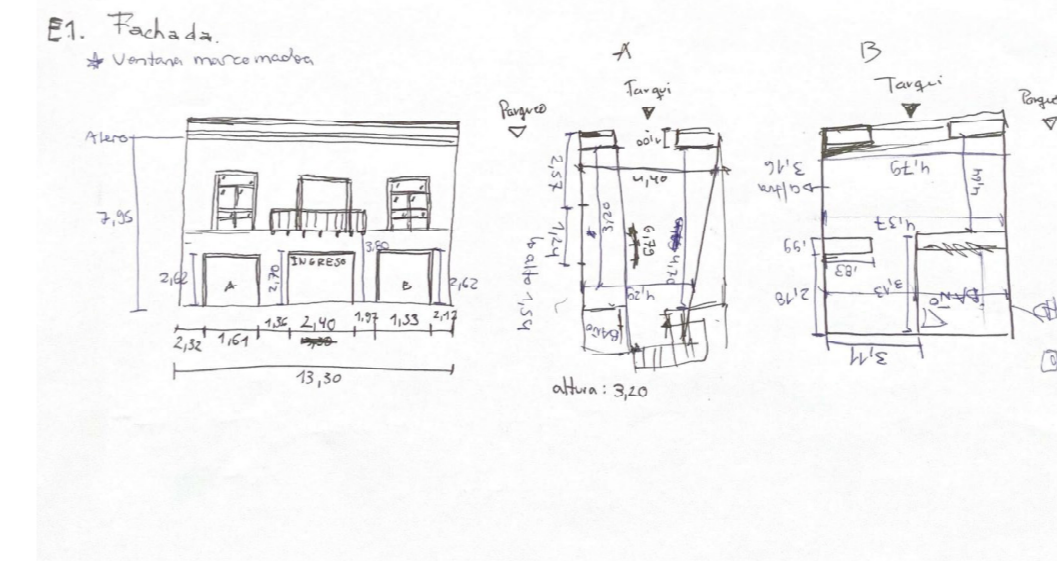 E1. Fachada.
* Ventana marco madera
Alero
7,95
2,62
A
2,70
INGRESO
3,80
B
2,62
2,32
1,61
1,36
2,40
1,97
1,53
2,12
13,30
A
Parqueo
Tarqui
1,00
2,57
4,40
3,20
1,24
6,79
4,29
Baño
altura: 3,20
B
Tarqui
3,16
altura
4,79
4,37
,99
,83
2,18
3,13
3,11